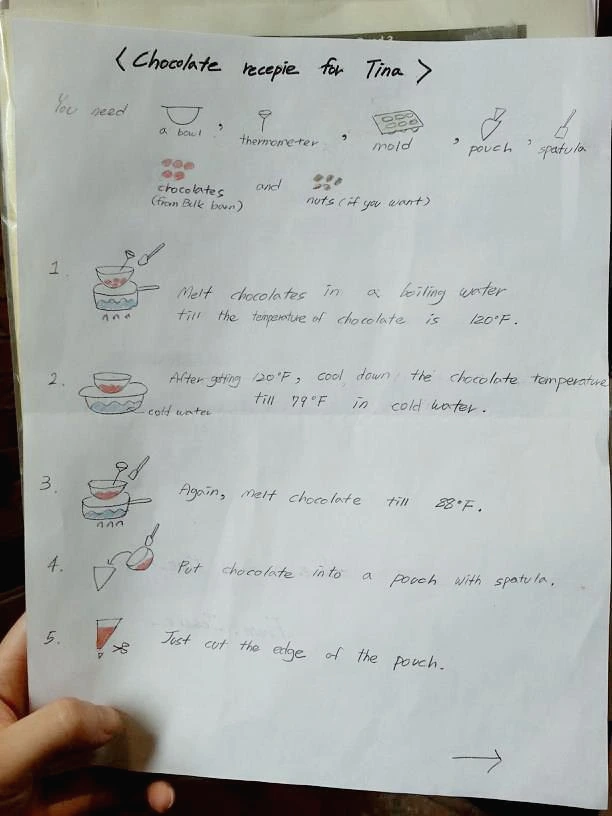 < Chocolate recepie for Tina >
You need a bowl, thermometer, mold, pouch, spatula
chocolates and nuts (if you want)
(from Bulk barn)
1. Melt chocolates in a boiling water
till the temperature of chocolate is 120°F.
2. After getting 120°F, cool down the chocolate temperature
till 79°F in cold water.
cold water
3. Again, melt chocolate till 88°F.
4. Put chocolate into a pouch with spatula.
5. Just cut the edge of the pouch.